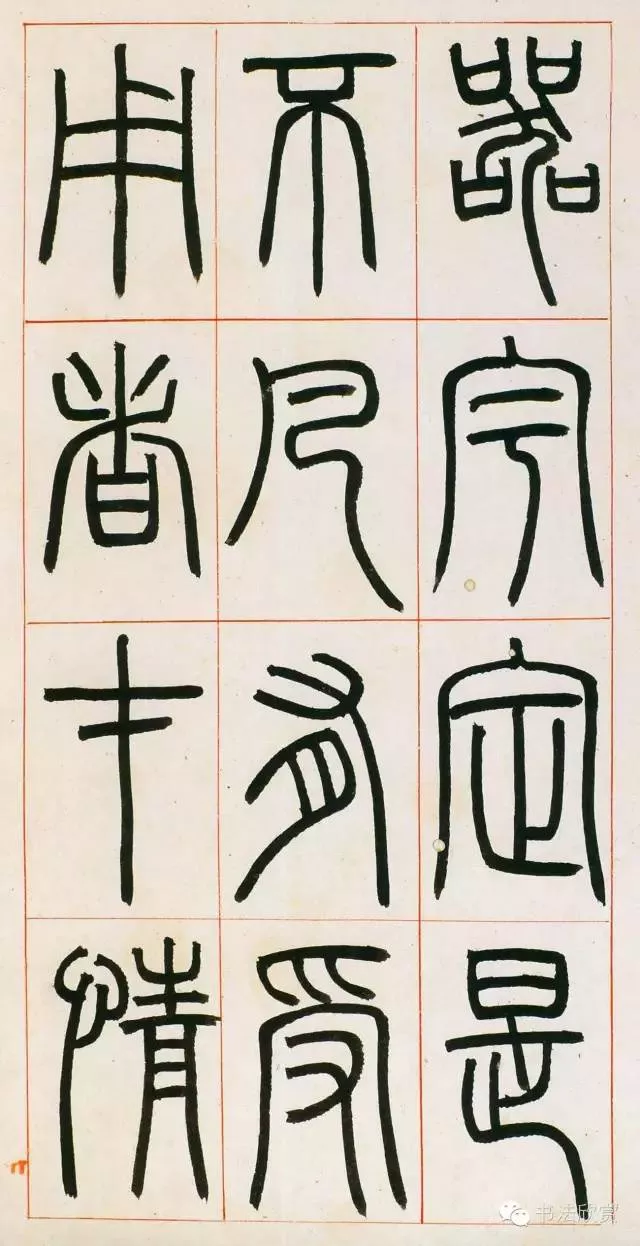 器宇定是
不凡有受
用者才情
书法欣赏